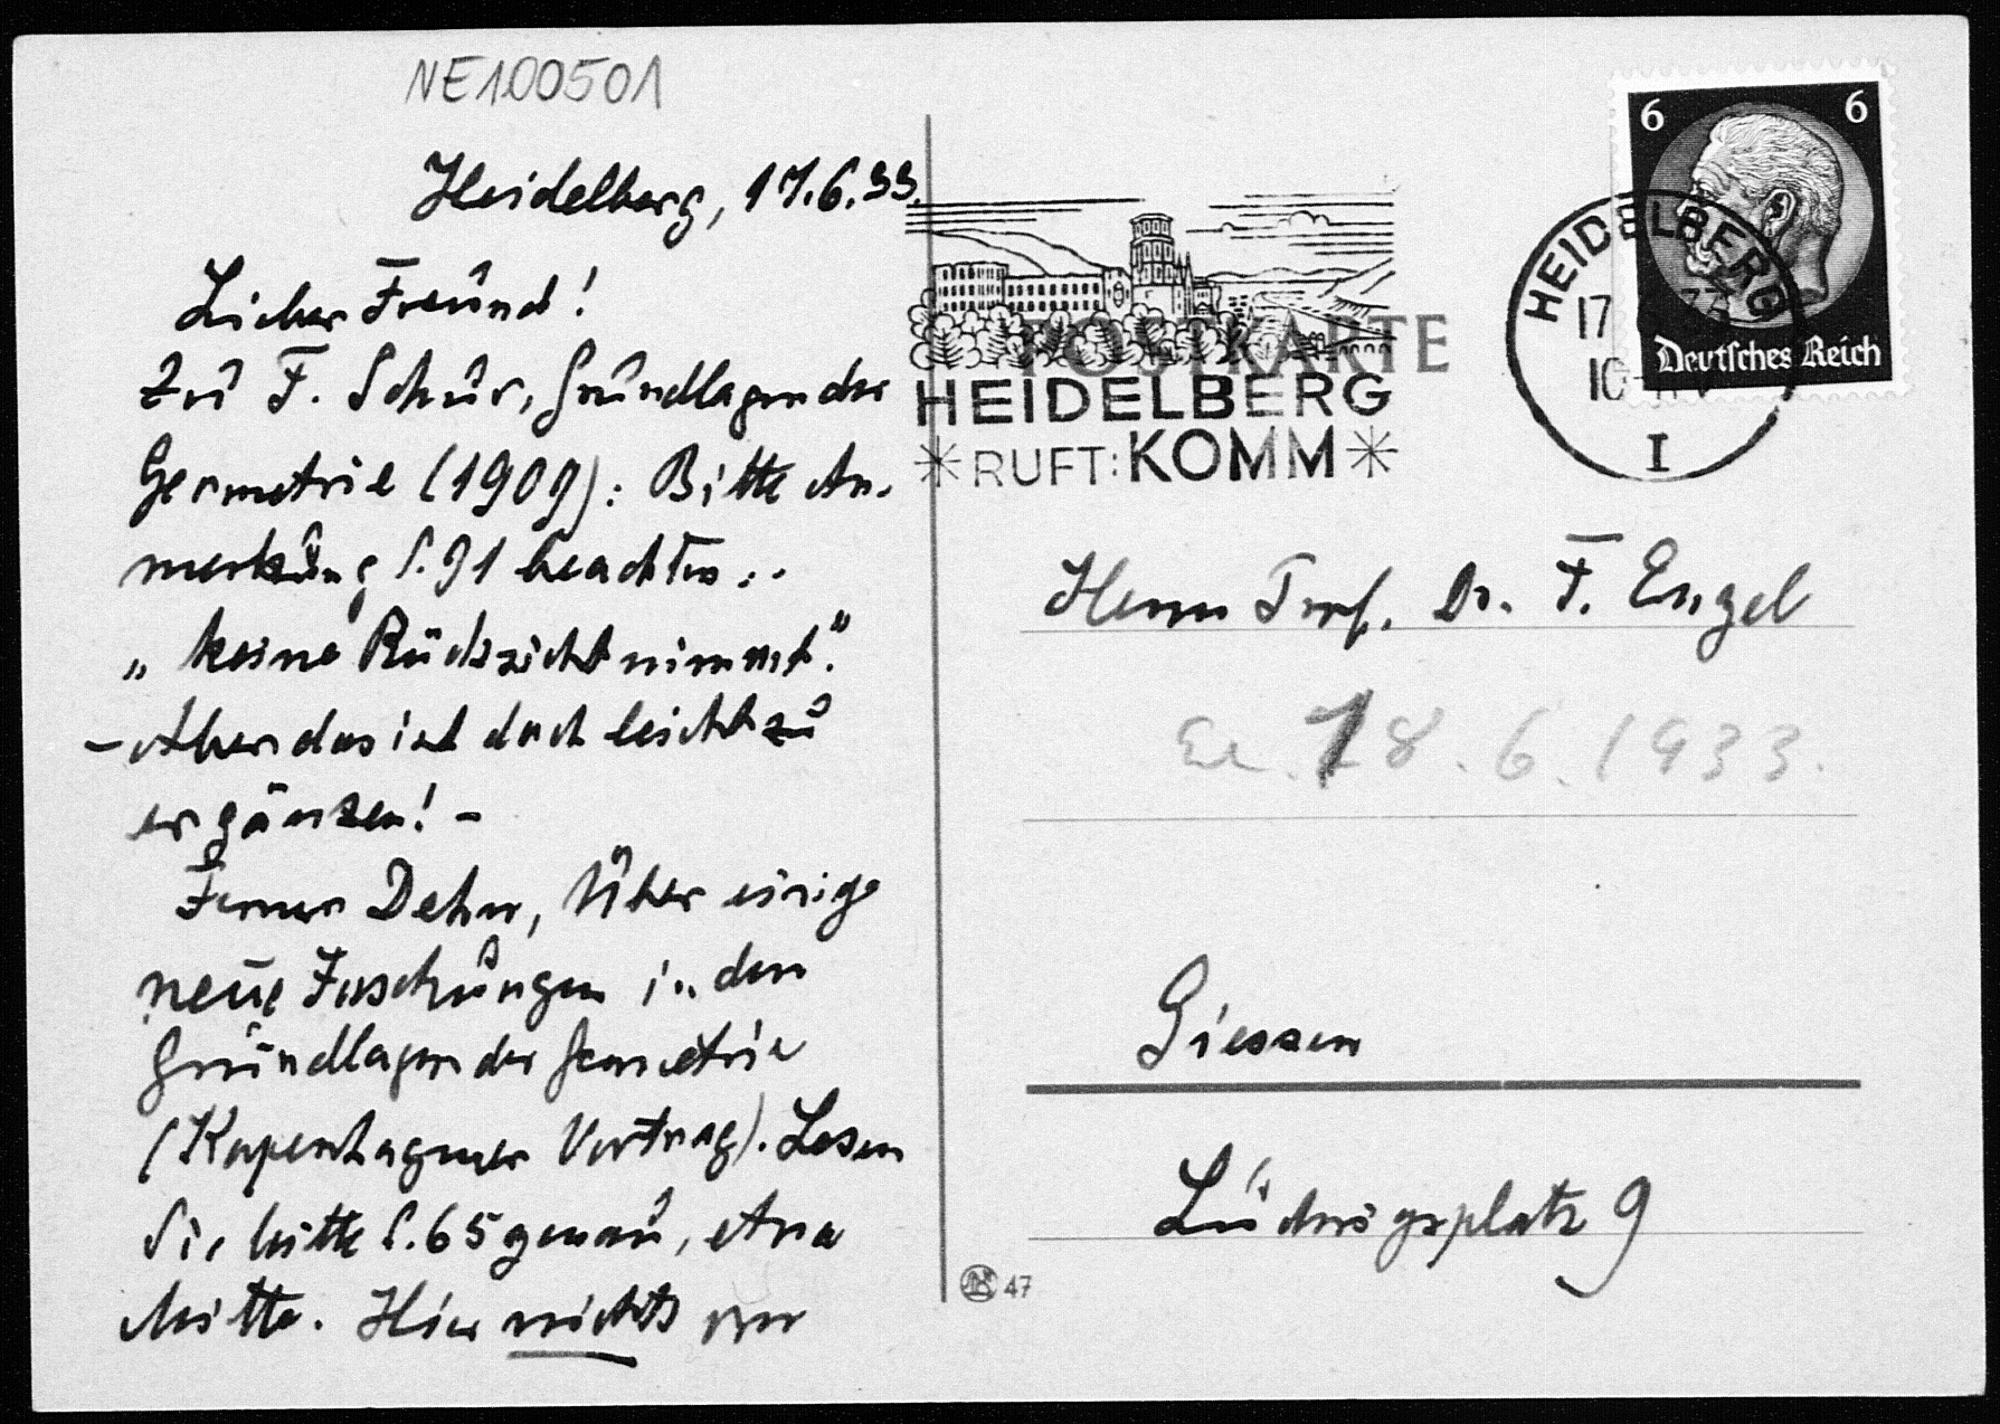 NE100501
Heidelberg, 17.6.33.
Lieber Freund!
Zu F. Schur, Grundlagen der
Geometrie (1909): Bitte An-
merkung S. 91 beachten:
„keine Rücksicht nimmt."
- Aber das ist doch leicht zu
ergänzen! -
Ferner Dehn, Über einige
neue Forschungen in den
Grundlagen der Geometrie
(Kopenhagener Vortrag). Lesen
Sie bitte S. 65 genau, etwa
Mitte. Hier nichts von
POSTKARTE
HEIDELBERG
RUFT: KOMM
6 6
Deutsches Reich
HEIDELBERG
17
10
I
Herrn Prof. Dr. F. Engel
18.6.1933.
Giessen
Ludwigsplatz 9
47